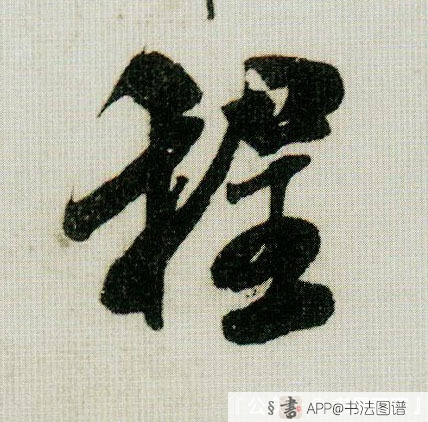 程
§書 APP@书法图谱